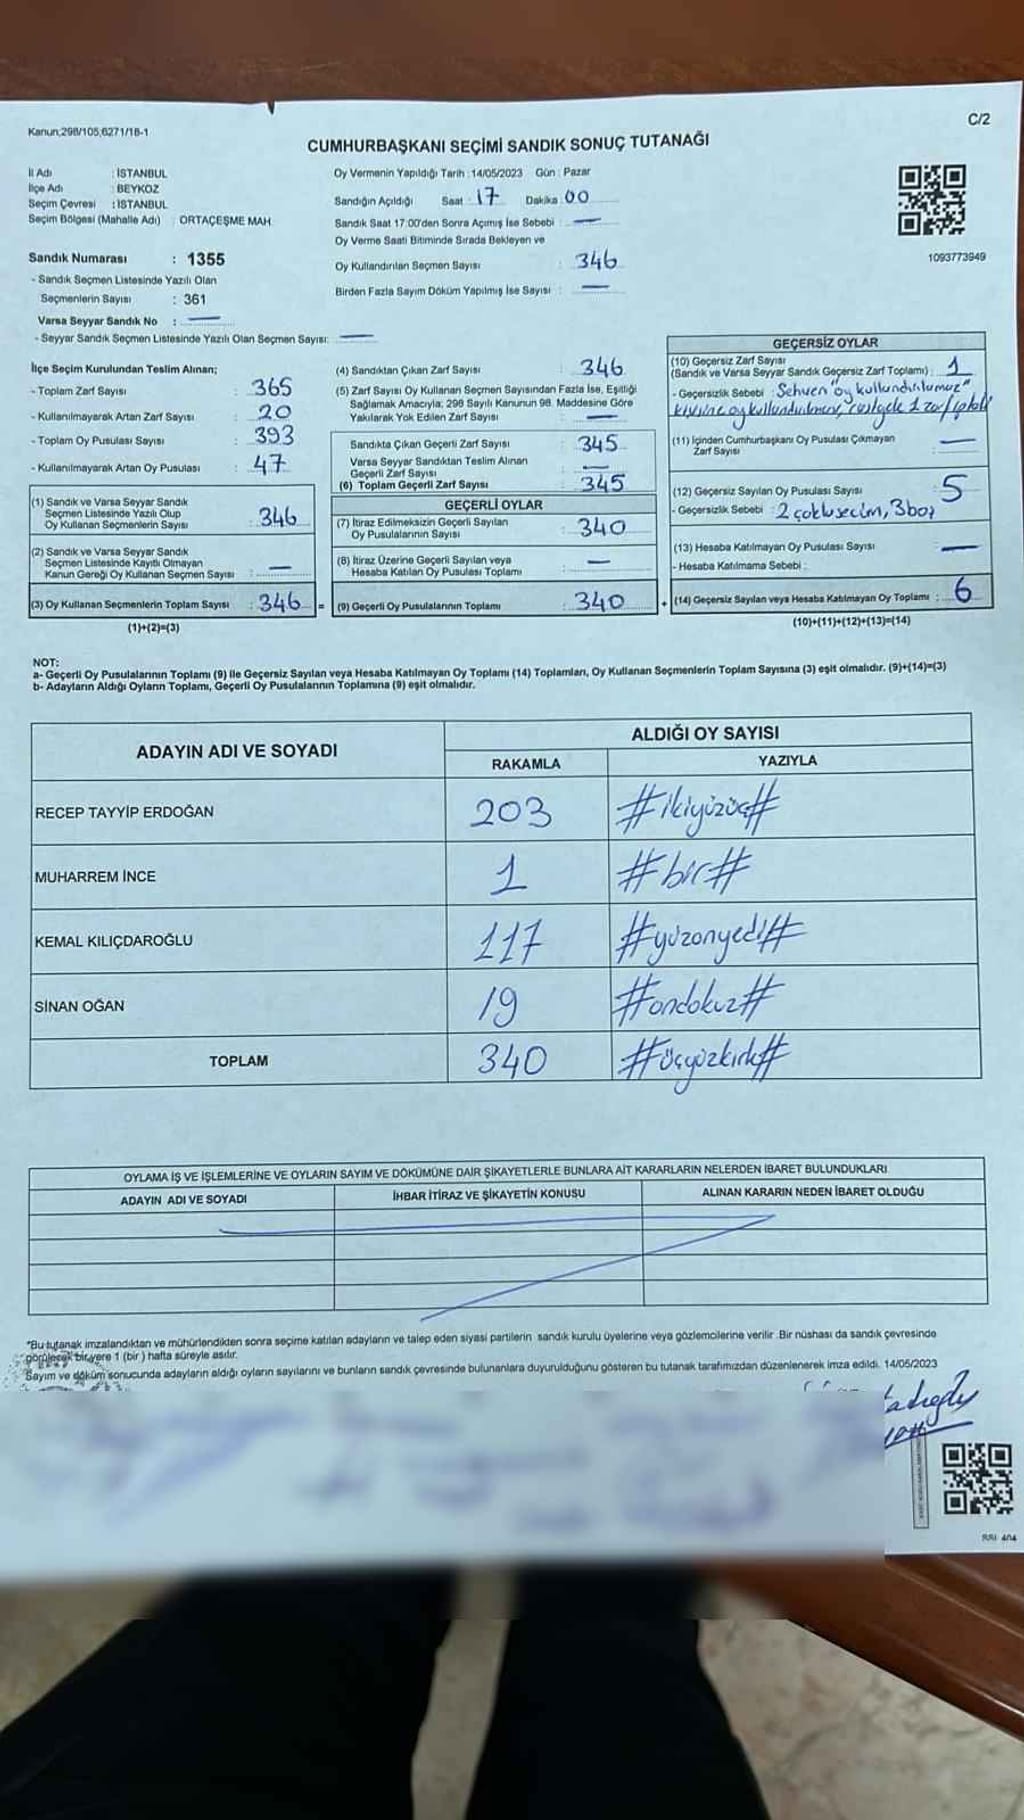 Kanun;298/105,6271/18-1
C/2
CUMHURBAŞKANI SEÇİMİ SANDIK SONUÇ TUTANAĞI
İl Adı : İSTANBUL
İlçe Adı : BEYKOZ
Seçim Çevresi : İSTANBUL
Seçim Bölgesi (Mahalle Adı) : ORTAÇEŞME MAH.
Sandık Numarası : 1355
- Sandık Seçmen Listesinde Yazılı Olan
Seçmenlerin Sayısı : 361
Varsa Seyyar Sandık No :
- Seyyar Sandık Seçmen Listesinde Yazılı Olan Seçmen Sayısı:
Oy Vermenin Yapıldığı Tarih : 14/05/2023 Gün : Pazar
Sandığın Açıldığı Saat : 17 Dakika : 00
Sandık Saat 17:00'den Sonra Açımış İse Sebebi :
Oy Verme Saati Bitiminde Sırada Bekleyen ve
Oy Kullandırılan Seçmen Sayısı : 346
Birden Fazla Sayım Döküm Yapılmış İse Sayısı :
1093773949
İlçe Seçim Kurulundan Teslim Alınan;
- Toplam Zarf Sayısı : 365
- Kullanılmayarak Artan Zarf Sayısı : 20
- Toplam Oy Pusulası Sayısı : 393
- Kullanılmayarak Artan Oy Pusulası : 47
(1) Sandık ve Varsa Seyyar Sandık
Seçmen Listesinde Yazılı Olup
Oy Kullanan Seçmenlerin Sayısı : 346
(2) Sandık ve Varsa Seyyar Sandık
Seçmen Listesinde Kayıtlı Olmayan
Kanun Gereği Oy Kullanan Seçmen Sayısı :
(3) Oy Kullanan Seçmenlerin Toplam Sayısı : 346 =
(1)+(2)=(3)
(4) Sandıktan Çıkan Zarf Sayısı : 346
(5) Zarf Sayısı Oy Kullanan Seçmen Sayısından Fazla İse, Eşitliği
Sağlamak Amacıyla; 298 Sayılı Kanunun 98. Maddesine Göre
Yakılarak Yok Edilen Zarf Sayısı :
Sandıkta Çıkan Geçerli Zarf Sayısı : 345
Varsa Seyyar Sandıktan Teslim Alınan
Geçerli Zarf Sayısı :
(6) Toplam Geçerli Zarf Sayısı : 345
GEÇERLİ OYLAR
(7) İtiraz Edilmeksizin Geçerli Sayılan
Oy Pusulalarının Sayısı : 340
(8) İtiraz Üzerine Geçerli Sayılan veya
Hesaba Katılan Oy Pusulası Toplamı :
(9) Geçerli Oy Pusulalarının Toplamı : 340 +
GEÇERSİZ OYLAR
(10) Geçersiz Zarf Sayısı
(Sandık ve Varsa Seyyar Sandık Geçersiz Zarf Toplamı) : 1
- Geçersizlik Sebebi : Sehven "oy kullandırılamaz"
(11) İçinden Cumhurbaşkanı Oy Pusulası Çıkmayan
Zarf Sayısı
(12) Geçersiz Sayılan Oy Pusulası Sayısı : 5
- Geçersizlik Sebebi : 2 çoklu seçim, 3 boş
(13) Hesaba Katılmayan Oy Pusulası Sayısı
- Hesaba Katılmama Sebebi :
(14) Geçersiz Sayılan veya Hesaba Katılmayan Oy Toplamı : 6
(10)+(11)+(12)+(13)=(14)
NOT:
a- Geçerli Oy Pusulalarının Toplamı (9) ile Geçersiz Sayılan veya Hesaba Katılmayan Oy Toplamı (14) Toplamları, Oy Kullanan Seçmenlerin Toplam Sayısına (3) eşit olmalıdır. (9)+(14)=(3)
b- Adayların Aldığı Oyların Toplamı, Geçerli Oy Pusulalarının Toplamına (9) eşit olmalıdır.
ADAYIN ADI VE SOYADI ALDIĞI OY SAYISI
RAKAMLA YAZIYLA
RECEP TAYYİP ERDOĞAN 203 #ikiyüzüç#
MUHARREM İNCE 1 #bir#
KEMAL KILIÇDAROĞLU 117 #yüzonyedi#
SİNAN OĞAN 19 #ondokuz#
TOPLAM 340 #üçyüzkırk#
OYLAMA İŞ VE İŞLEMLERİNE VE OYLARIN SAYIM VE DÖKÜMÜNE DAİR ŞİKAYETLERLE BUNLARA AİT KARARLARIN NELERDEN İBARET BULUNDUKLARI
ADAYIN ADI VE SOYADI İHBAR İTİRAZ VE ŞİKAYETİN KONUSU ALINAN KARARIN NEDEN İBARET OLDUĞU
*Bu tutanak imzalandıktan ve mühürlendikten sonra seçime katılan adayların ve talep eden siyasi partilerin sandık kurulu üyelerine veya gözlemcilerine verilir .Bir nüshası da sandık çevresinde
görülecek bir yere 1 (bir ) hafta süreyle asılır.
Sayım ve döküm sonucunda adayların aldığı oyların sayılarını ve bunların sandık çevresinde bulunanlara duyurulduğunu gösteren bu tutanak tarafımızdan düzenlenerek imza edildi. 14/05/2023